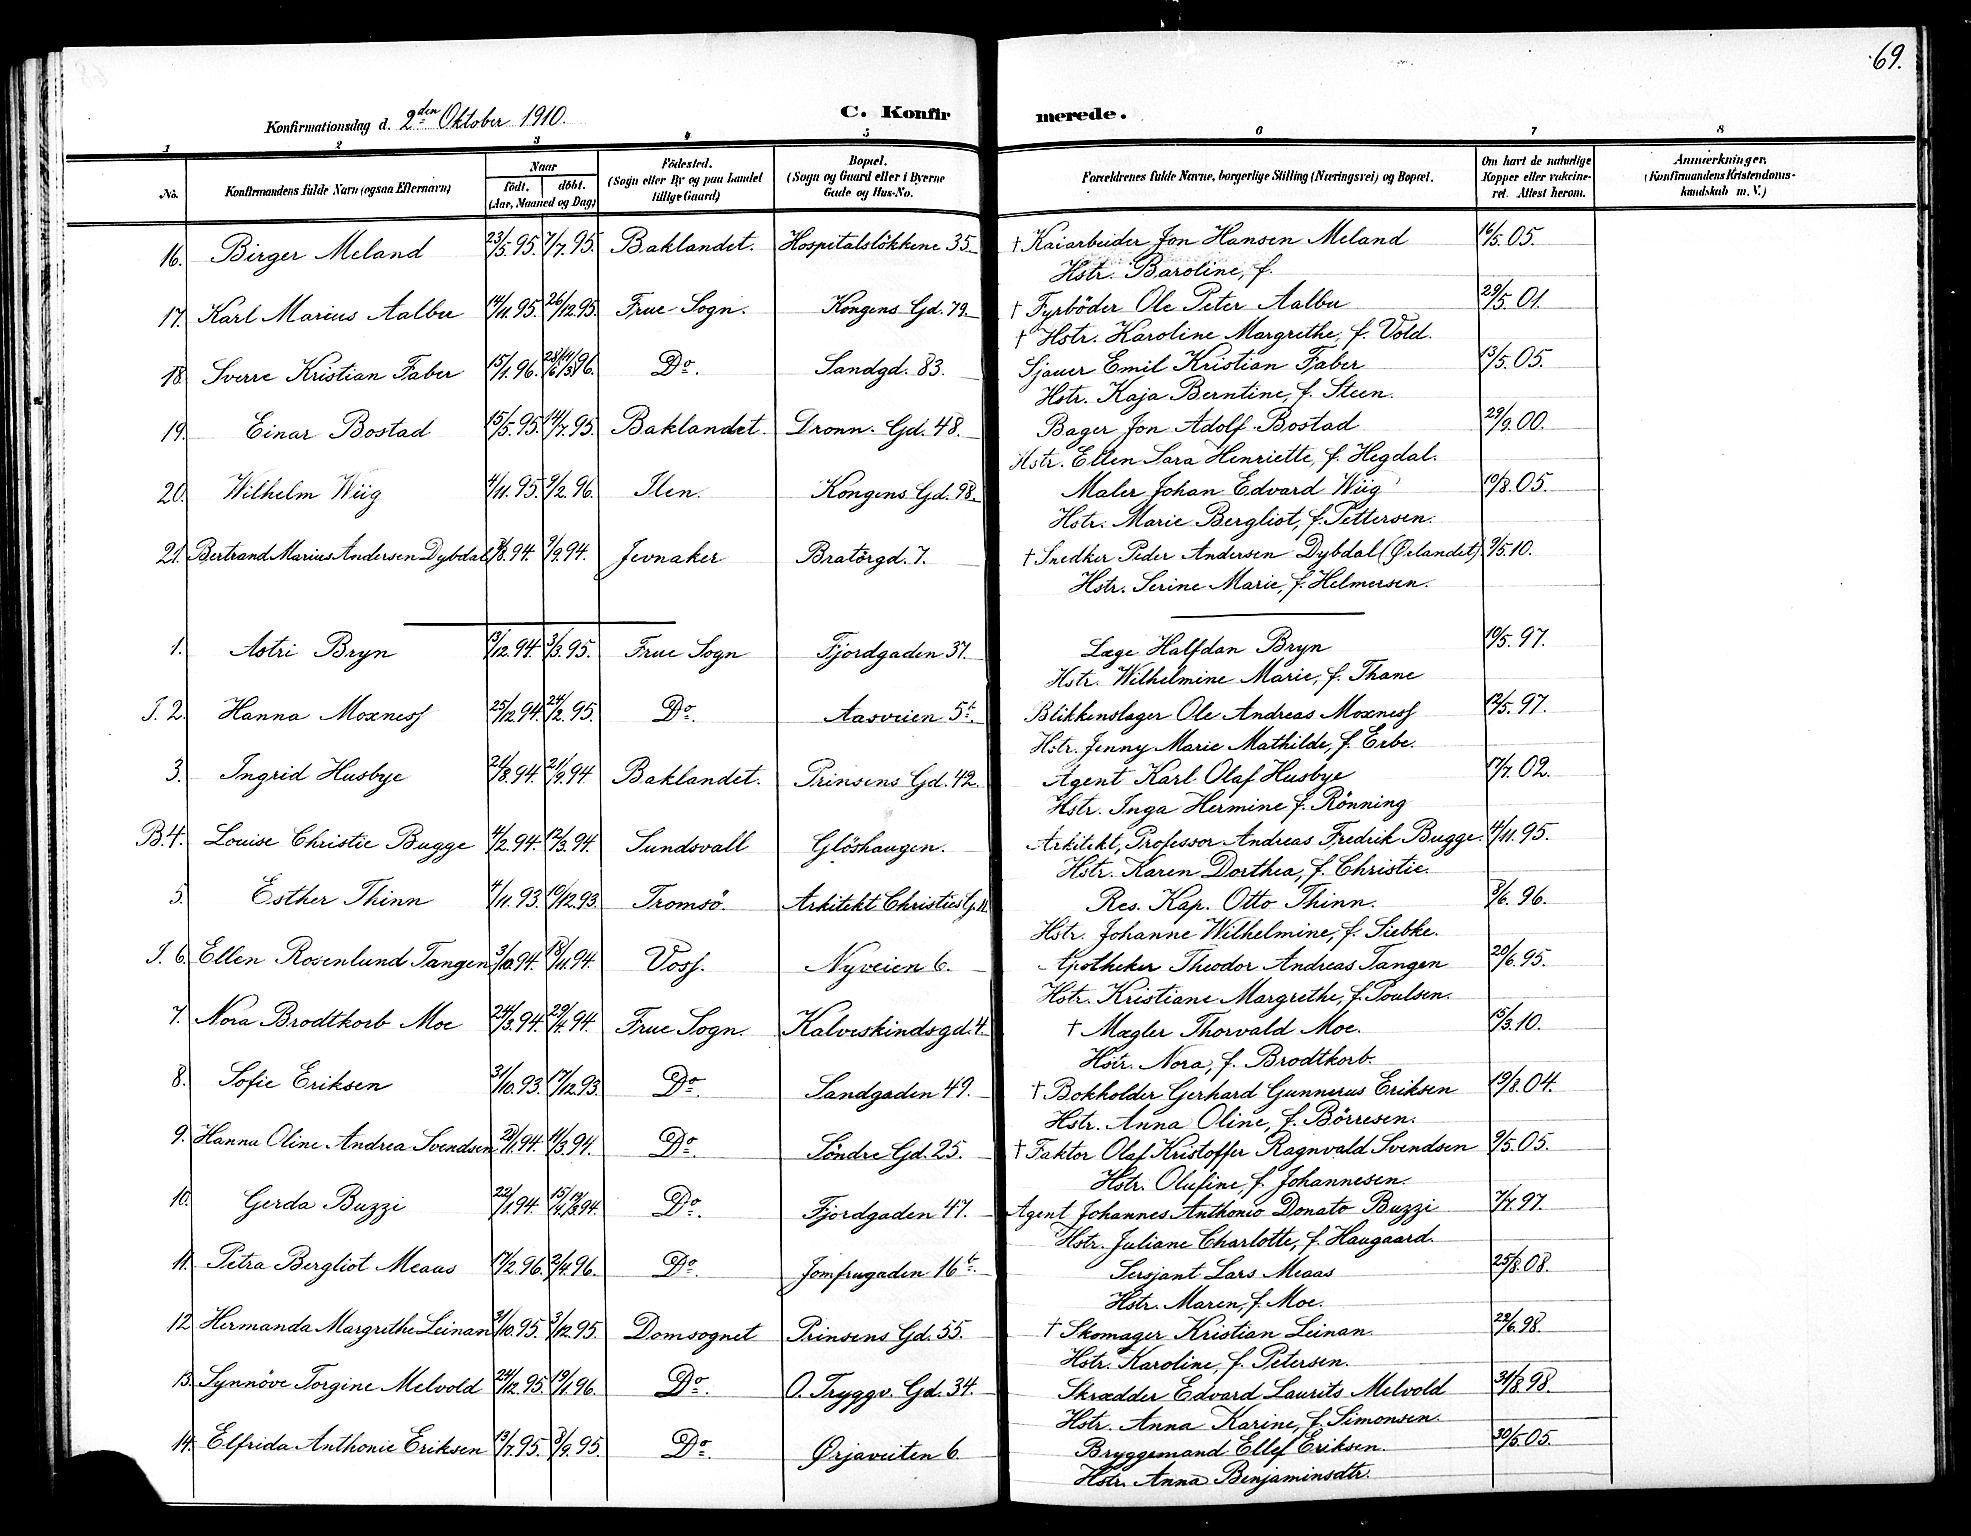 69.
Konfirmationsdag d. 2den Oktober 1910.
C. Konfirmerede.
1 2 3 4 5 6 7 8
No. Konfirmandens fulde Navn (ogsaa Efternavn) Naar født. døbt. (Aar, Maaned og Dag) Födested. (Sogn eller By og paa Landet tillige Gaard) Bopæl. (Sogn og Gaard eller i Byerne Gade og Hus-No. Forældrenes fulde Navne, borgerlige Stilling (Næringsvei) og Bopæl. Om havt de naturlige Kopper eller vakcineret. Attest herom. Anmærkninger. (Konfirmandens Kristendomskundskab m. V.)
16. Birger Meland 23/5.95. 7/7.95. Baklandet. Hospitalslökkene 35. † Kaiarbeider Jon Hansen Meland 16/5.05.
Hstr. Baroline, f.
17. Karl Marius Aalbu 14/11.95. 26/12.95. Frue Sogn. Kongens Gd. 79. † Fyrböder Ole Peter Aalbu 29/5.01.
† Hstr. Karoline Margrethe, f. Vold.
18. Sverre Kristian Faber 15/1.96. Do. Sandgd. 83. Sjauer Emil Kristian Faber 13/5.05.
Hstr. Kaja Berntine, f. Steen.
19. Einar Bostad 15/5.95. 14/7.95. Baklandet. Dronn. Gd. 48. Bager Jon Adolf Bostad 29/9.00.
Hstr. Ellen Sara Henriette, f. Hegdal.
20. Wilhelm Wiig 4/11.95. 9/2.96. Ilen. Kongens Gd. 98. Maler Johan Edvard Wiig 10/8.05.
Hstr. Marie Bergliot, f. Pettersen.
21. Bertrand Marius Andersen Dybdal 8.94. 9/9.94. Jevnaker Bratörgd. 7. † Snedker Peder Andersen Dybdal (Ørlandet). 9/5.10.
Hstr. Serine Marie, f. Helmersen.
1. Astri Bryn 13/12.94. 3/3.95. Frue Sogn Fjordgaden 37. Læge Halfdan Bryn 10/5.97.
Hstr. Wilhelmine Marie, f. Thane
I. 2. Hanna Moxness 25/12.94. 24/2.95. Do. Aasveien 5b. Blikkenslager Ole Andreas Moxness 12/5.97.
Hstr. Jenny Marie Mathilde, f. Erbe.
3. Ingrid Husbye 24/8.94. 21/9.94. Baklandet. Prinsens Gd. 42. Agent Karl Olaf Husbye 17/7.02.
Hstr. Inga Hermine f. Rönning
B. 4. Louise Christie Bugge 4/2.94. 12/3.94. Sundsvall Glöshaugen. Arkitekt, Professor Andreas Fredrik Bugge. 4/11.95.
Hstr. Karen Dorthea, f. Christie.
5. Esther Thinn 4/11.93. 10/12.93. Tromsö. Arkitekt Christies G. Res. Kap. Otto Thinn. 3/6.96.
Hstr. Johanne Wilhelmine, f. Siebke.
I. 6. Ellen Rosenlund Tangen 3/10.94. 18/11.94. Voss. Nyveien 6. Apotheker Theodor Andreas Tangen 20/6.95.
Hstr. Kristiane Margrethe, f. Poulsen.
7. Nora Brodtkorb Moe 24/3.94. 29/4.94. Frue Sogn. Kalveskindsgd. 4. † Mægler Thorvald Moe. 15/3.10.
Hstr. Nora, f. Brodtkorb.
8. Sofie Eriksen 31/10.93. 17/12.93. Do. Sandgaden 49. † Bokholder Gerhard Gunnerus Eriksen 19/8.04.
Hstr. Anna Oline, f. Börresen.
9. Hanna Oline Andrea Svendsen 1.94. 11/3.94. Do. Söndre Gd. 25. † Faktor Olaf Kristoffer Ragnvald Svendsen 9/5.05.
Hstr. Olufine, f. Johannesen.
10. Gerda Buzzi 22/1.94. Do. Fjordgaden 47. Agent Johannes Anthonio Donato Buzzi 7/7.97.
Hstr. Juliane Charlotte, f. Haugaard.
11. Petra Bergliot Meaas 17/2.96. 2/4.96. Do. Jomfrugaden 16b. Sersjant Lars Meaas 25/8.08.
Hstr. Maren, f. Moe.
12. Hermanda Margrithe Leinan 31/10.95. 3/12.95. Domsognet Prinsens Gd. 55. † Skomager Kristian Leinan. 22/6.98.
Hstr. Karoline, f. Petersen.
13. Synnöve Torgine Melvold 24/12.95. 19/1.96. Do. O. Tryggv. Gd. 34. Skrædder Edvard Laurits Melvold 31/8.98.
Hstr. Anna Karine, f. Simonsen.
14. Elfrida Anthonie Eriksen 13/7.95. 8/9.95. Do. Ørjaveiten 6. Bryggemand Ellef Eriksen. 30/5.05.
Hstr. Anna Benjaminsdtr.